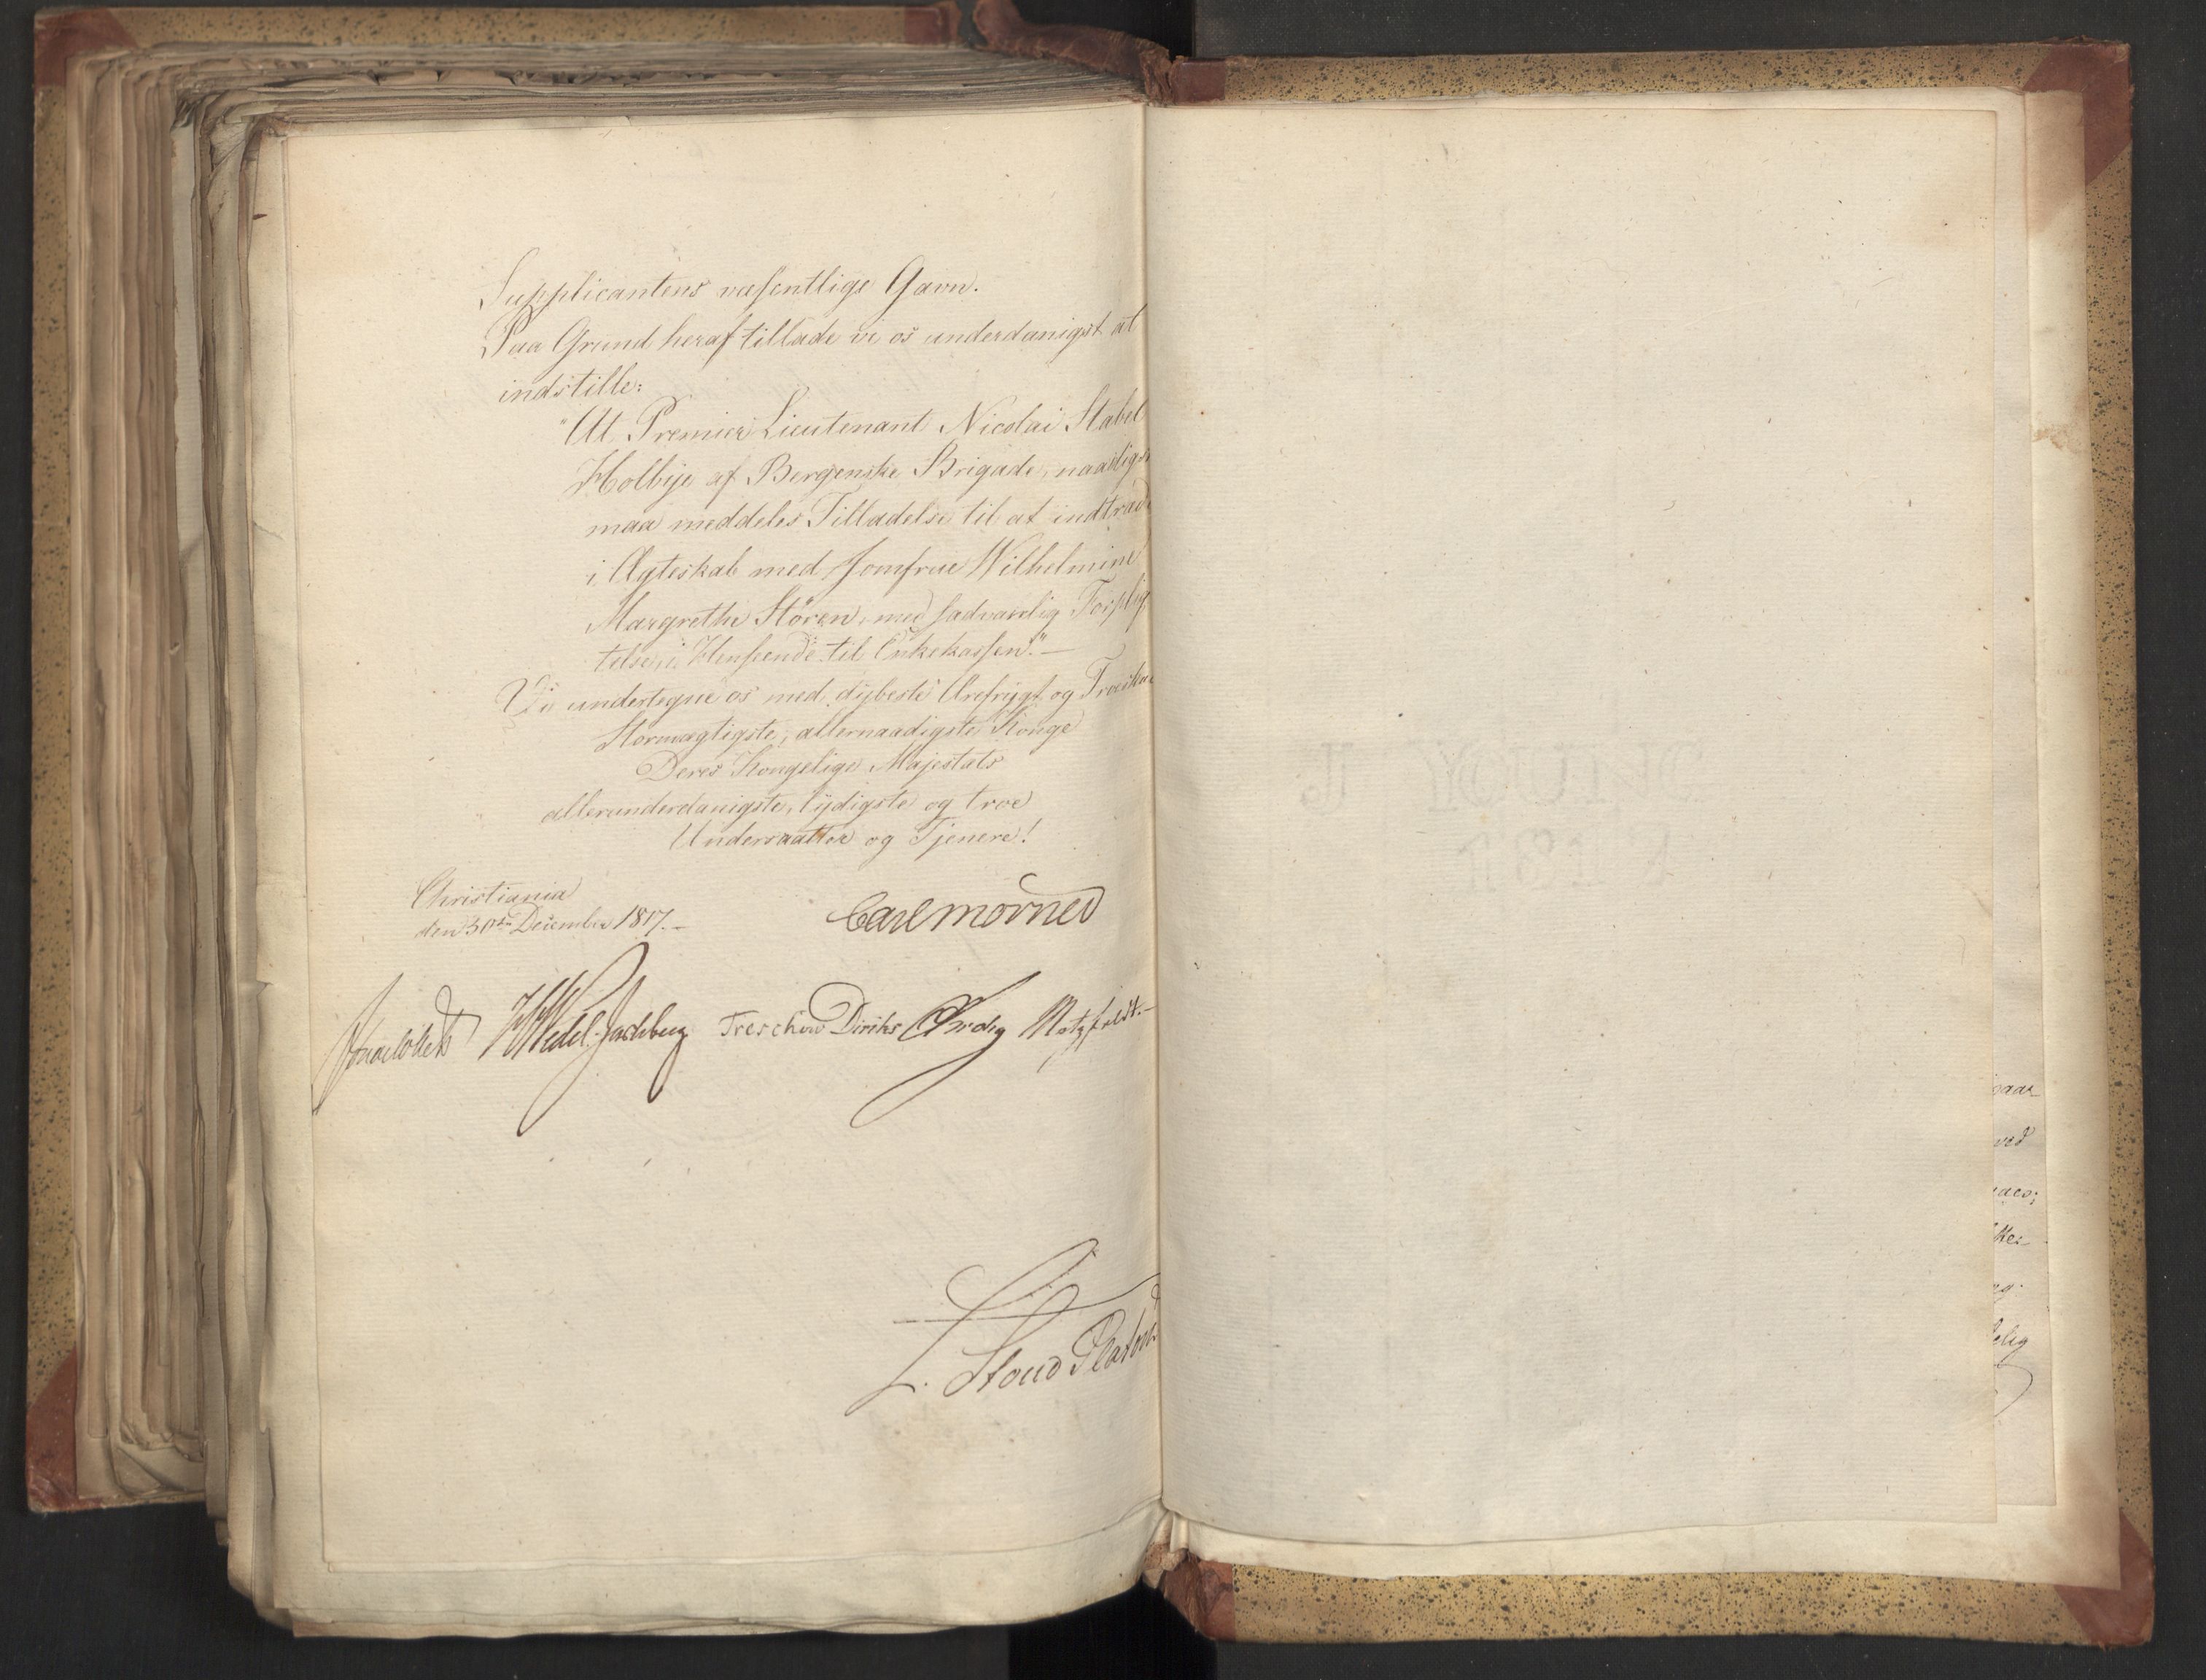 Supplicantens væsentlige Gavn.
Paa Grund heraf tillade vi os underdanigst at
indstille:
"At Premier Lieutenant Nicolai Stabel
Holbye af Bergenske Brigade, naadigst
maa meddeles Tilladelse til at indtræde
i Ægteskab med Jomfrue Wilhelmine
Margrethe Stören, med sædvanlig Forplig
telse i Henseende til Enkekassen." —
Vi undertegne os med dybeste Ærefrygt og Troeskab
Stormægtigste, allernaadigste Konge
Deres Kongelige Majestæts
allerunderdanigste, lydigste og troe
Undersaatter og Tjenere!
Christiania
den 30te December 1817. –
Carl mörner
Wedel-Jarlsberg Treschow Diriks Motzfeldt. –
L. Stoud Platou
paar
ved